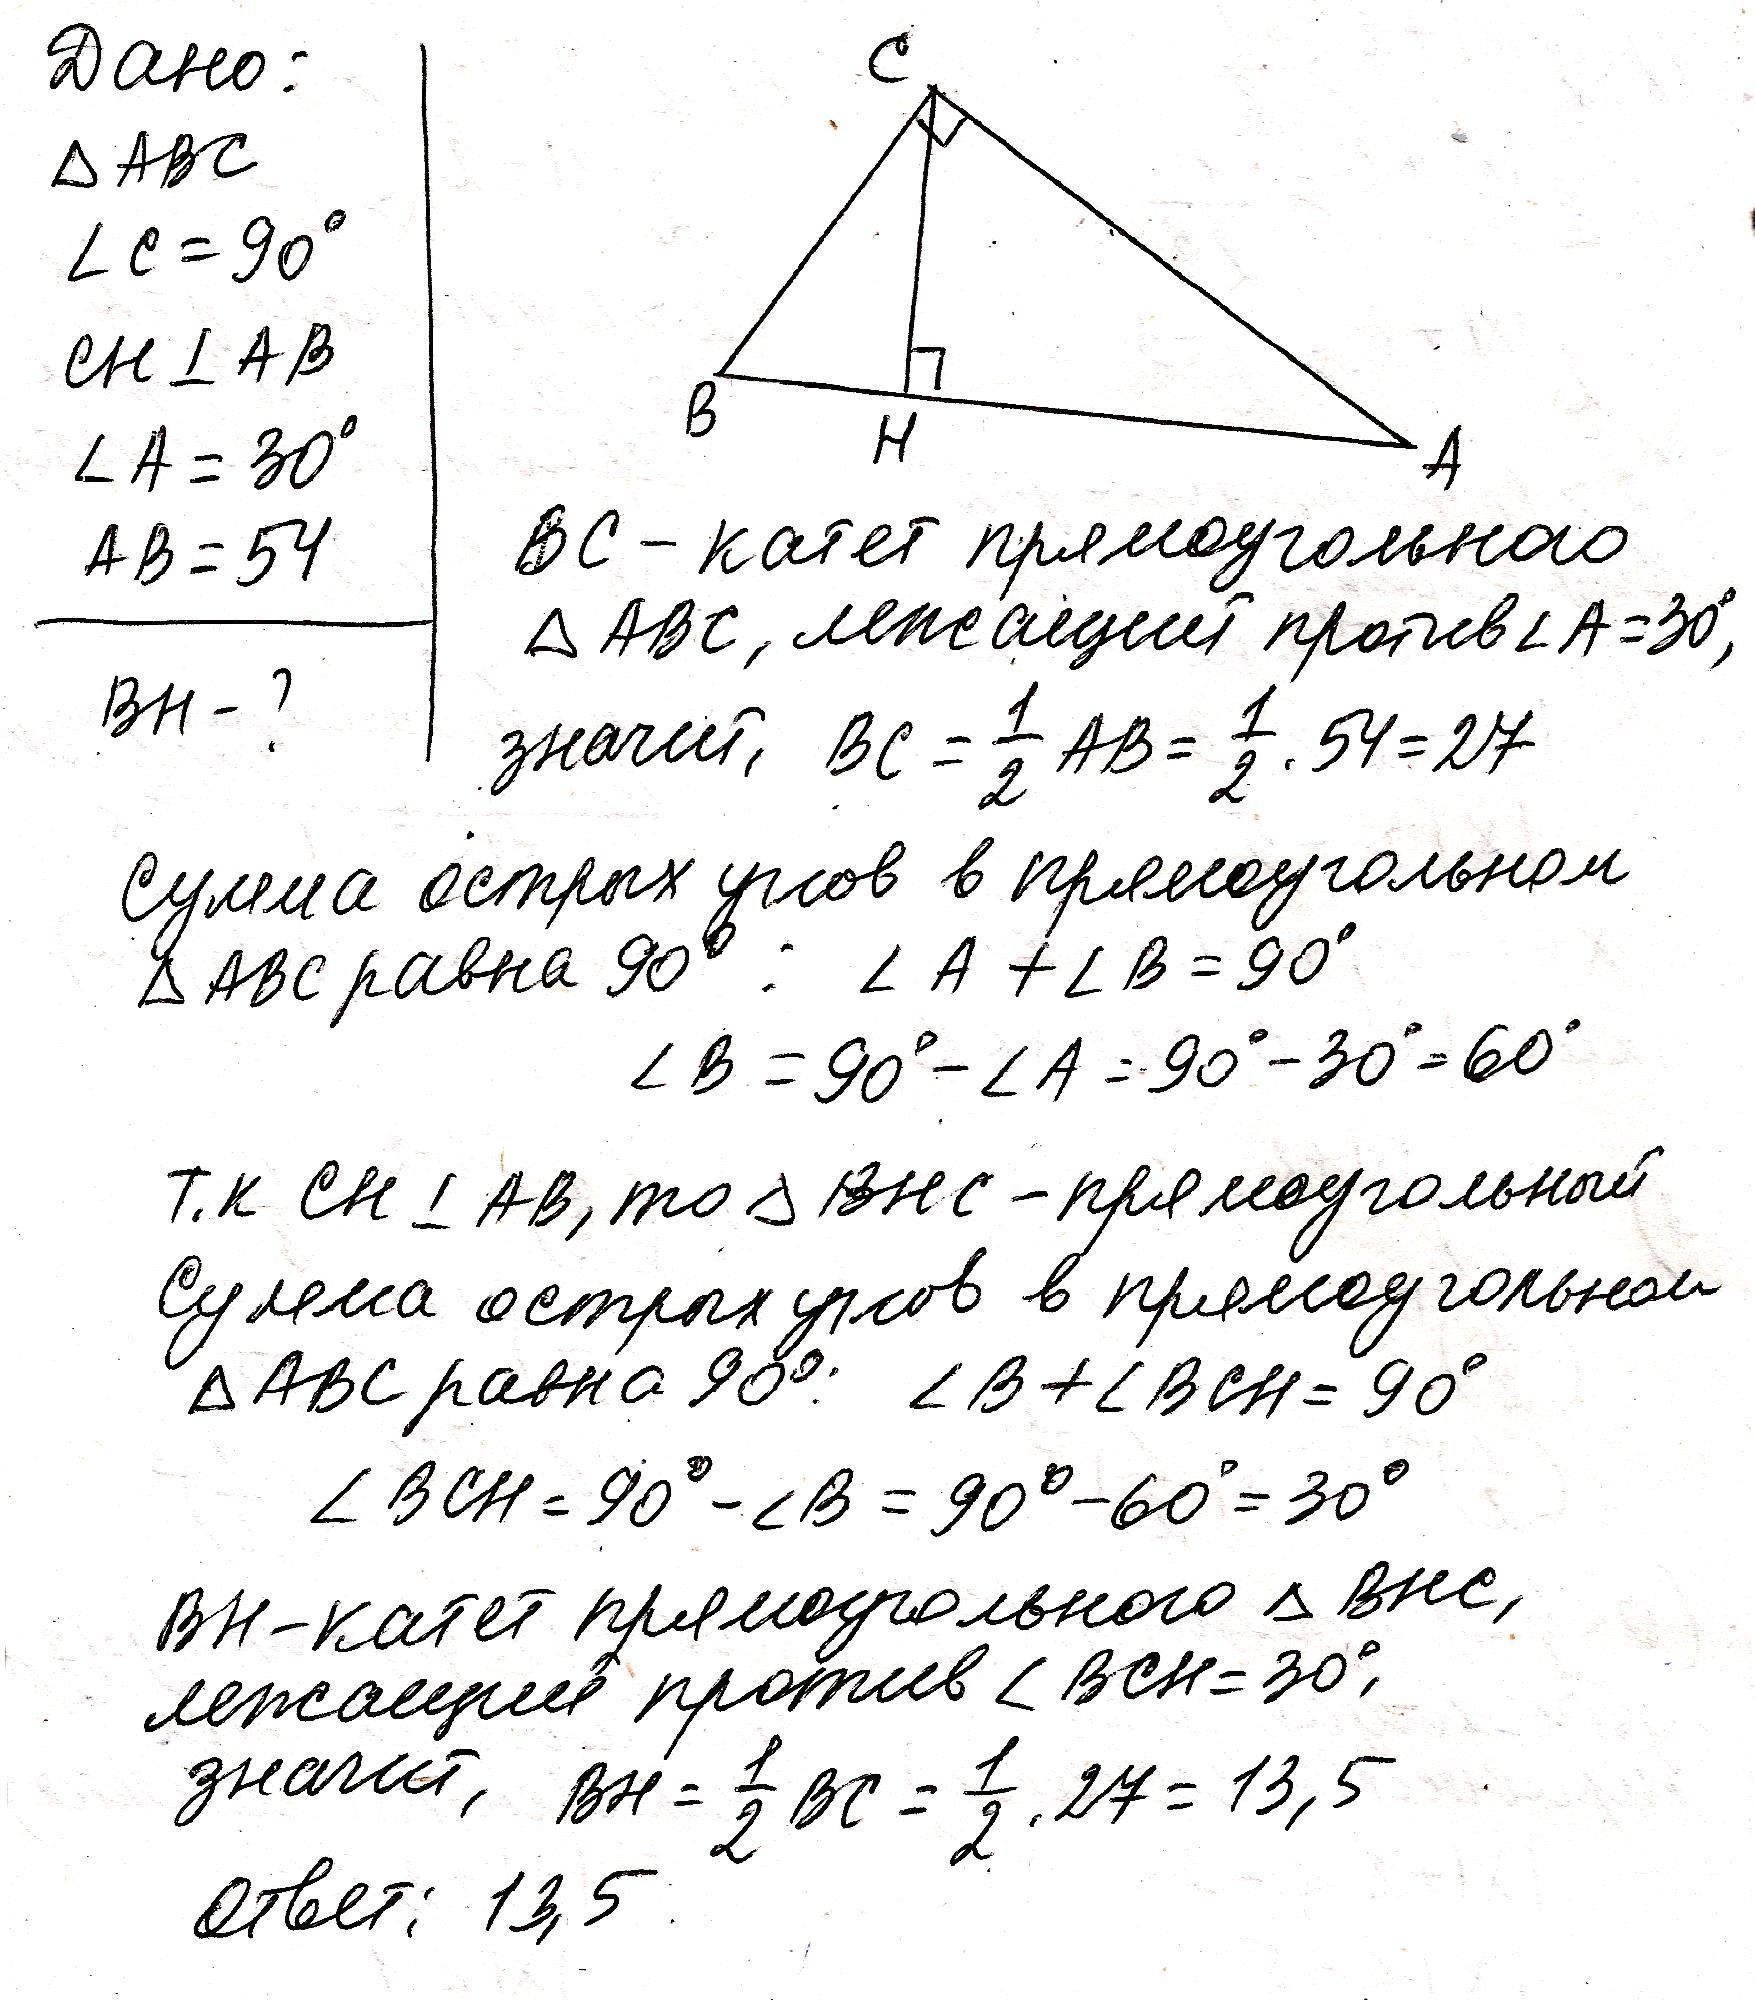 Дано:
△ABC
∠C = 90°
CH ⊥ AB
∠A = 30°
AB = 54
BH - ?
C
B
H
A
BC - катет прямоугольного
△ABC, лежащий против ∠A = 30°,
значит, BC = 1/2 AB = 1/2 · 54 = 27
Сумма острых углов в прямоугольном
△ABC равна 90° : ∠A + ∠B = 90°
∠B = 90° - ∠A = 90° - 30° = 60°
т.к CH ⊥ AB, то △BHC - прямоугольный
Сумма острых углов в прямоугольном
△ABC равна 90°: ∠B + ∠BCH = 90°
∠BCH = 90° - ∠B = 90° - 60° = 30°
BH - катет прямоугольного △BHC,
лежащий против ∠BCH = 30°,
значит, BH = 1/2 BC = 1/2 · 27 = 13,5
Ответ: 13,5